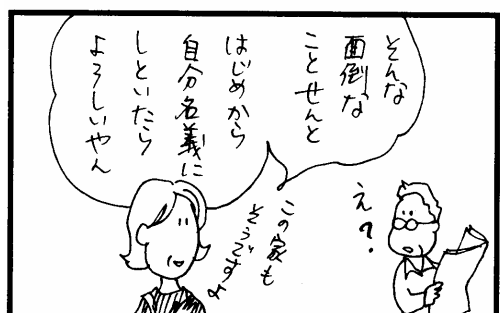 そんな
面倒な
ことせんと
はじめから
自分名義に
しといたら
よろしいやん
この家も
そうですよ
え?